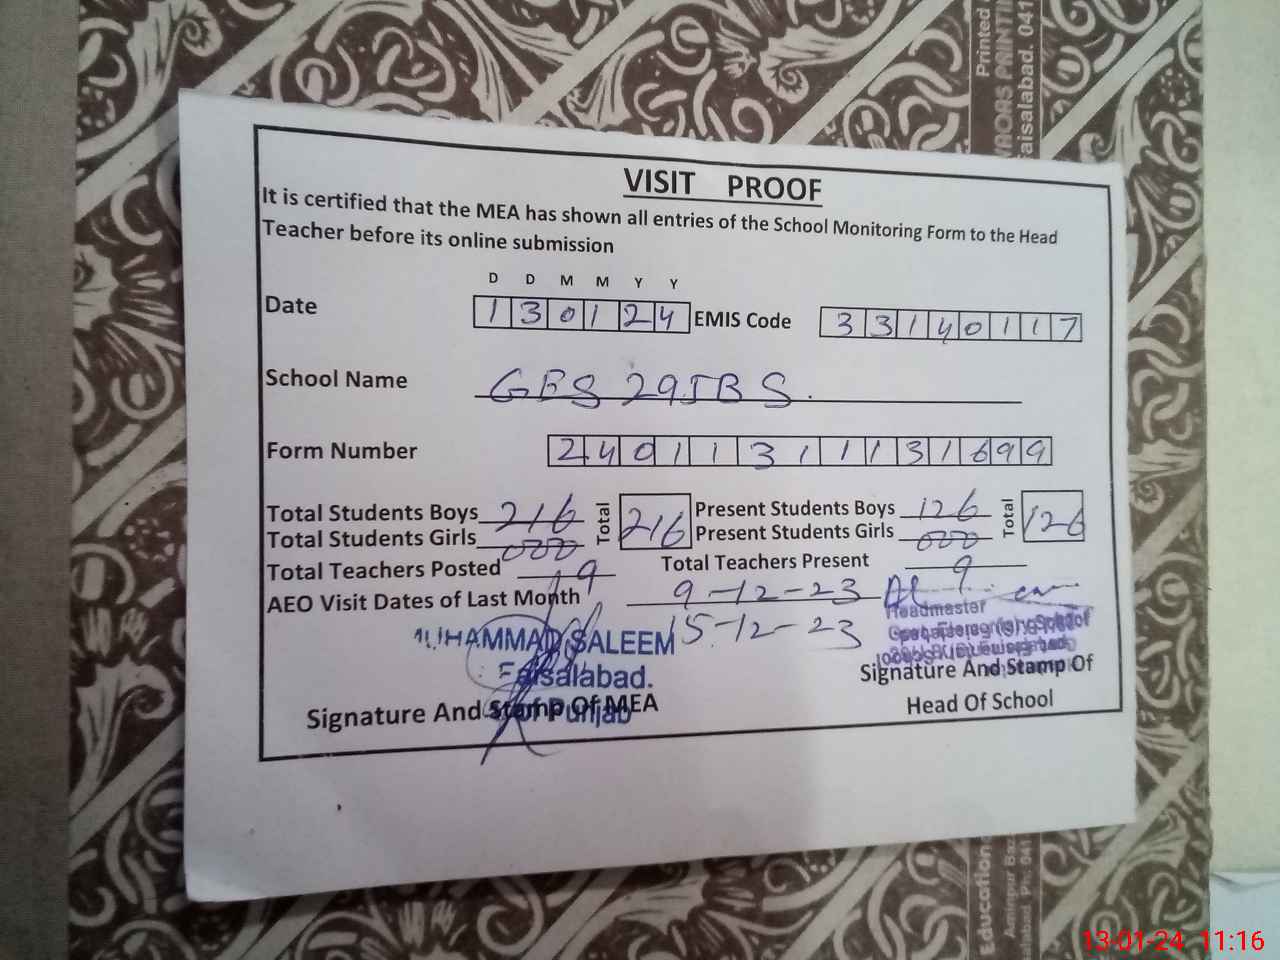 Printed
RORS PRINTIN
aisalabad. 041
VISIT PROOF
It is certified that the MEA has shown all entries of the School Monitoring Form to the Head
Teacher before its online submission
D D M M Y Y
Date 130124 EMIS Code 33140117
School Name GES 29JBS.
Form Number 24011311131699
Total Students Boys 216 Total 216 Present Students Boys 126 Total 126
Total Students Girls 000 Present Students Girls 000
Total Teachers Posted 9 Total Teachers Present 9
AEO Visit Dates of Last Month 9-12-23
15-12-23
MUHAMMAD SALEEM
Faisalabad.
of Punjab
Headmaster
Signature And Stamp Of MEA
Signature And Stamp Of
Head Of School
Education
Aminpur Baz
labad. Ph. 041
13-01-24 11:16